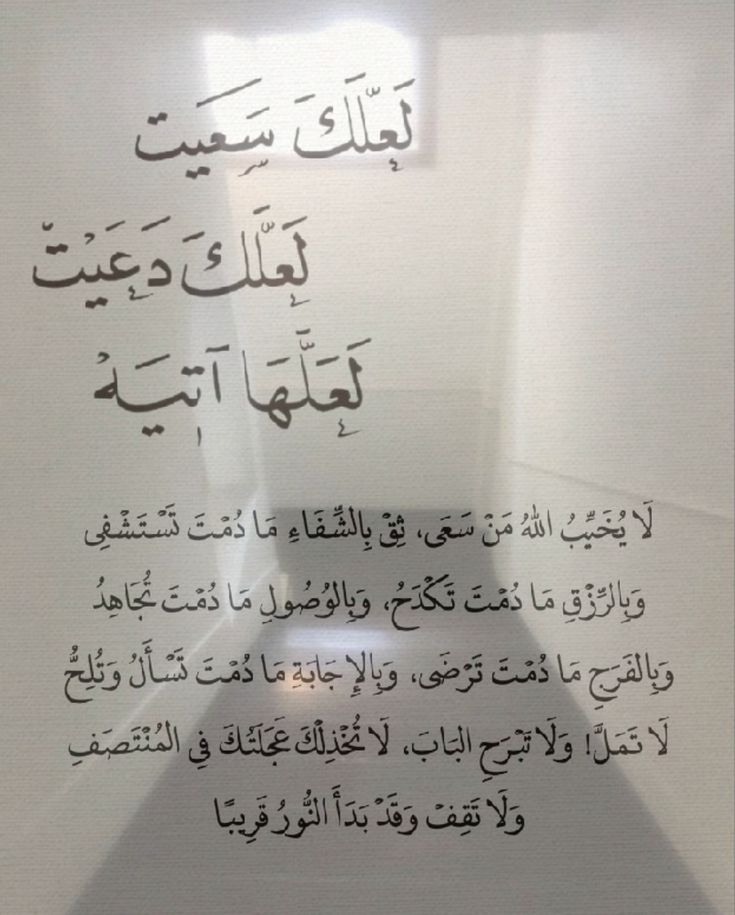 لَعَلَّكَ سَعَيت
لَعَلَّكَ دَعَيْت
لَعَلَّهَا آتِيَهْ
لَا يُخَيِّبُ اللهُ مَنْ سَعَى، ثِقْ بِالشِّفَاءِ مَا دُمْتَ تَسْتَشْفِى
وَبِالرِّزْقِ مَا دُمْتَ تَكْدَحُ، وَبِالوُصُولِ مَا دُمْتَ تُجَاهِدُ
وَبِالفَرَجِ مَا دُمْتَ تَرْضَى، وَبِالإِجَابَةِ مَا دُمْتَ تَسْأَلُ وَتُلِحُّ
لَا تَمَلَّ! وَلَا تَبْرَحِ البَابَ، لَا تُخْذِلْكَ عَجَلَتُكَ فِى المُنْتَصَفِ
وَلَا تَقِفْ وَقَدْ بَدَأَ النُّورُ قَرِيبًا